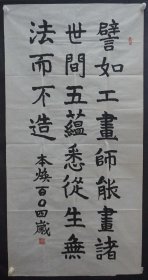 譬如工畫師能畫諸
世間五蘊悉從生無
法而不造
本焕百〇四歲